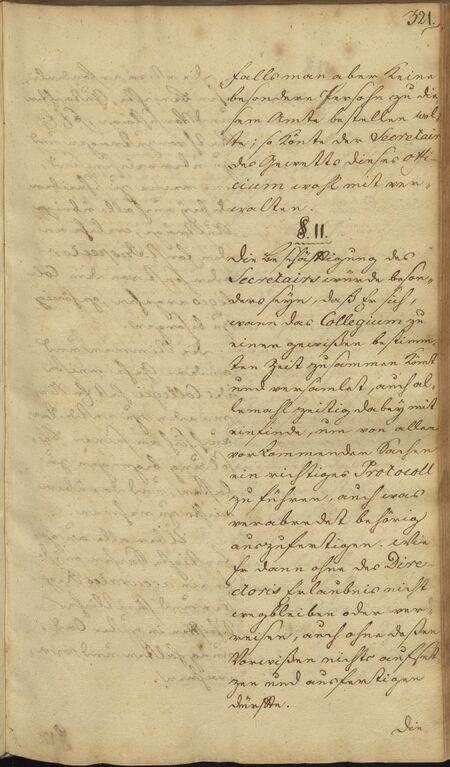 321.
falls man aber keine
besondere Persohn zu die
sem Amte bestellen wol
te; so könte der Secretair
des Gewetts dieses offi-
cium wohl mit ver-
walten.
§. 11.
Die Beschäftigung des
Secretairs würde beson-
ders seyn, daß Er sich,
wann das Collegium zu
einer gewißen bestimm-
ten Zeit zusammen kömt
und versamlet, auch al-
lemahl zeitig dabey mit
einfinde, um von allen
vorkommenden Sachen
ein richtiges Protocoll
zu führen, auch was
verabredet behörig
auszufertigen. Wie
Er dann ohne des Dire-
ctoris Erlaubnis nicht
wegbleiben oder ver-
reisen, auch ohne deßen
Vorwißen nichts aufset
zen und ausfertigen
dürfte.
Die